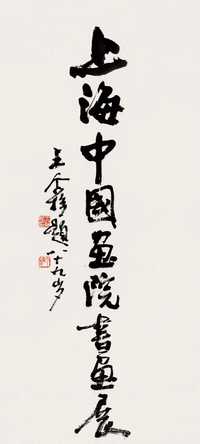 上海中國畫院書畫展
王个簃題 八十九岁